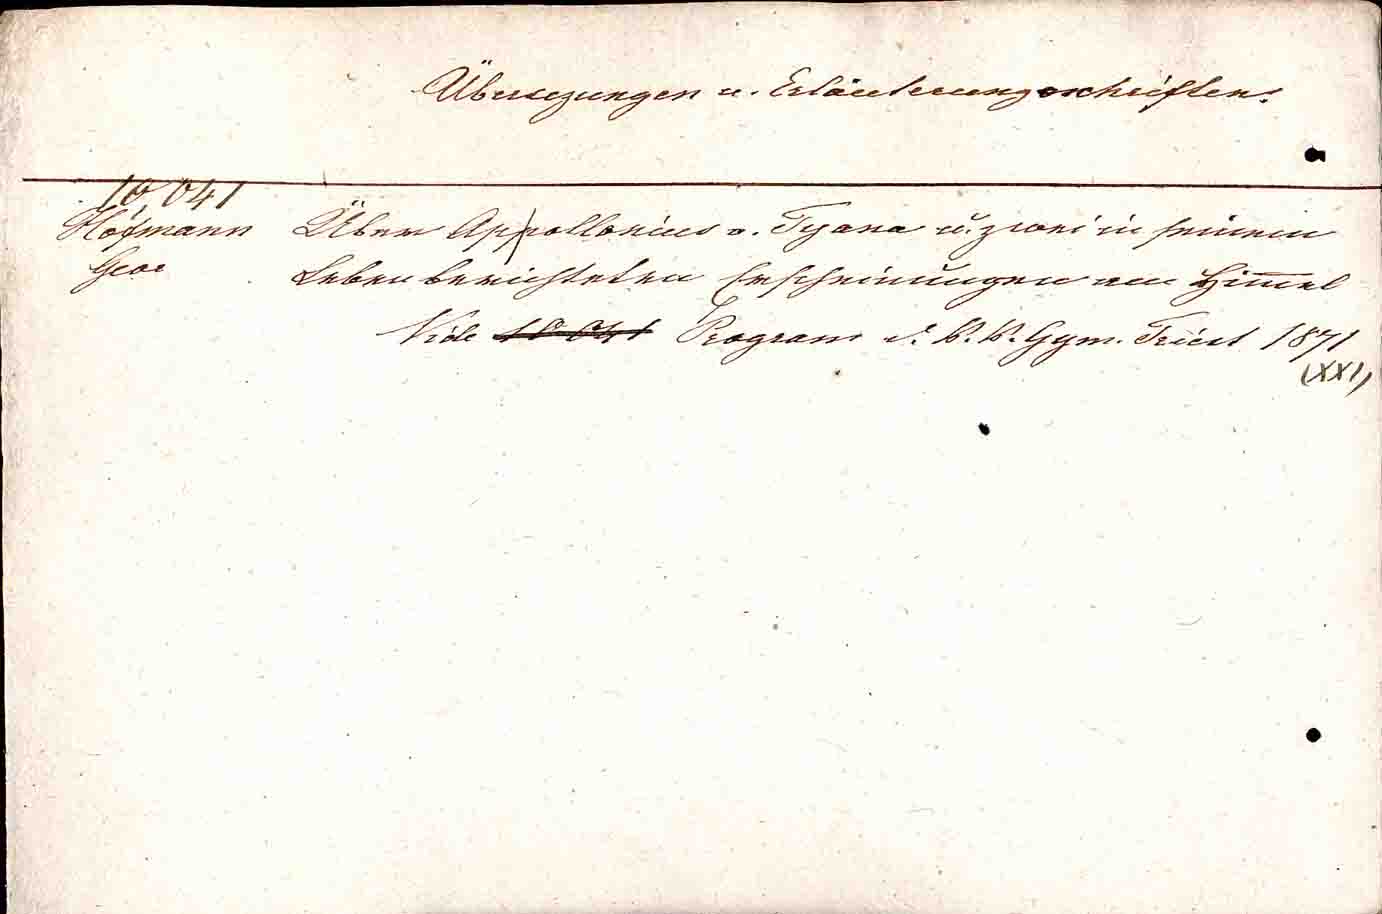 Übersezungen u. Erläuterungsschriften.
10,041
Hofmann Über Appollonius v. Tyana u. zwei in seinem
Geor Leben berichteten Erscheinungen am Himmel
Vide 10 041 Program d. k. k. Gym. Triest 1871
(XXI)